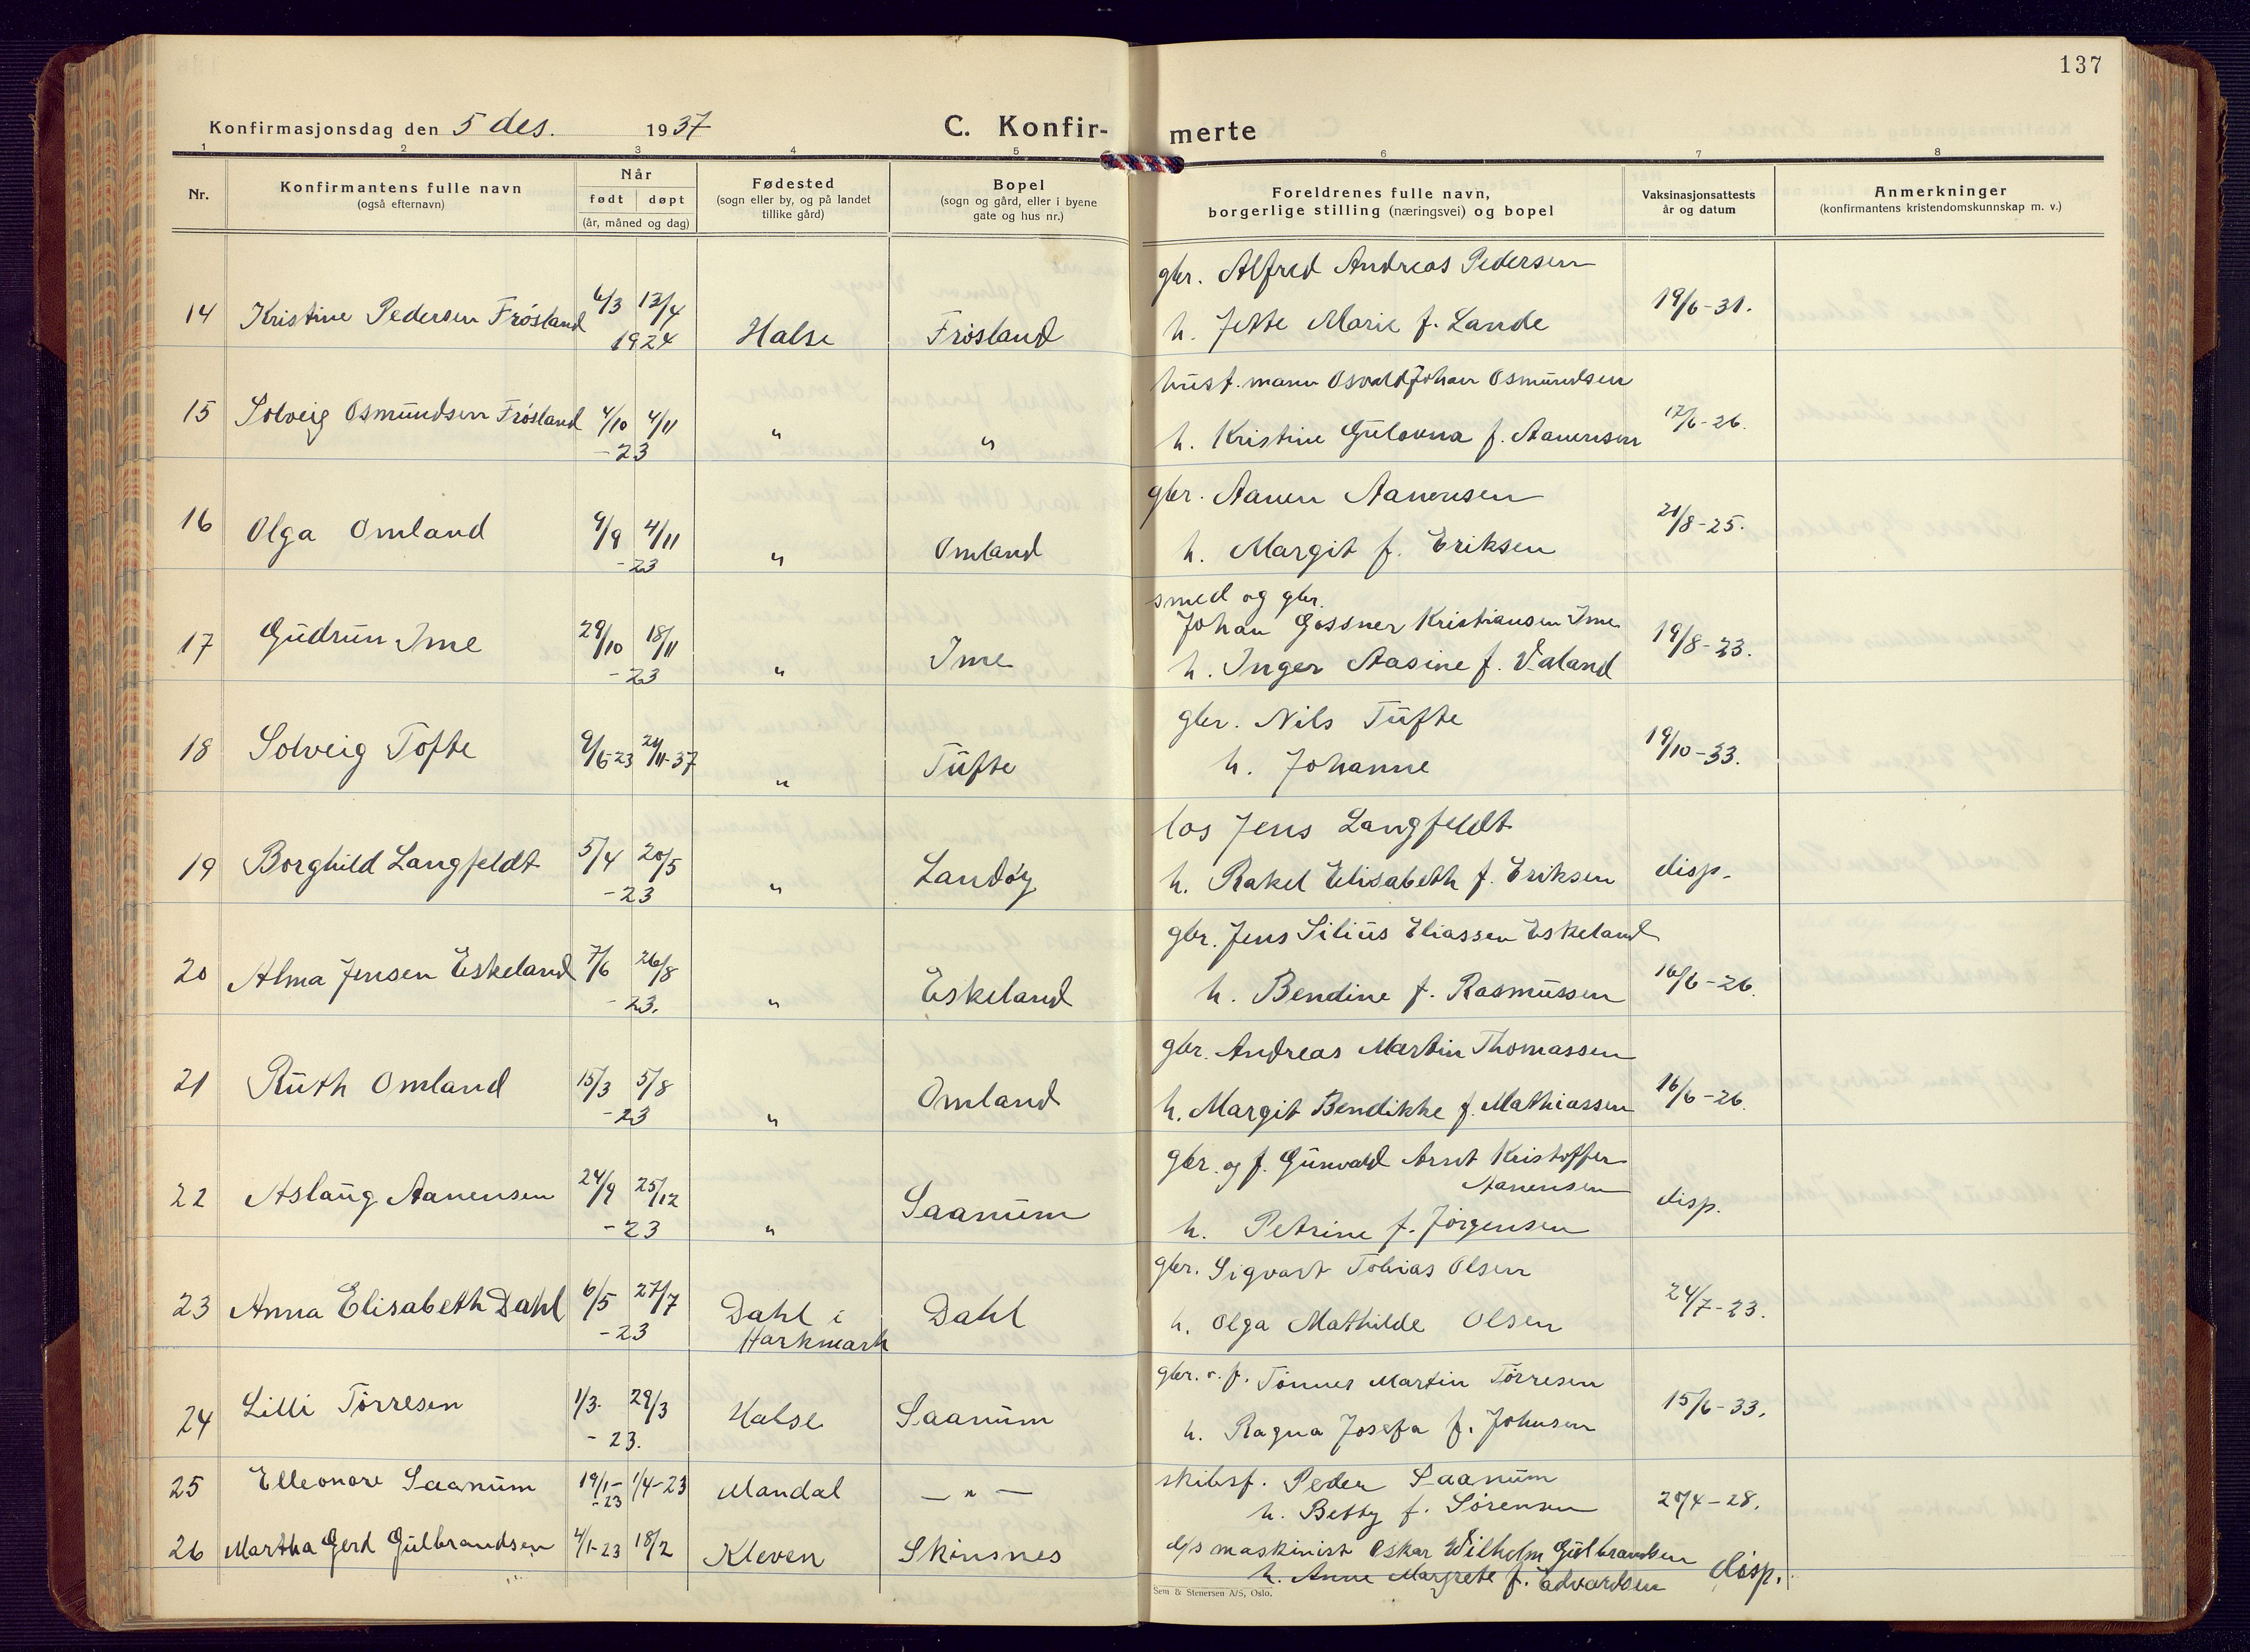 137
Konfirmasjonsdag den 5 des. 1937
C. Konfir- merte
1 2 3 4 5 6 7 8
Nr.
Konfirmantens fulle navn
(også efternavn)
Når
født døpt
(år, måned og dag)
Fødested
(sogn eller by, og på landet
tillike gård)
Bopel
(sogn og gård, eller i byene
gate og hus nr.)
Foreldrenes fulle navn,
borgerlige stilling (næringsvei) og bopel
Vaksinasjonsattests
år og datum
Anmerkninger
(konfirmantens kristendomskunnskap m. v.)
gbr. Alfred Andreas Pedersen
14 Kristine Pedersen Frøsland 6/3 13/4 19/6-31.
1924 Halse Frøsland h. Jette Marie f. Lande
husf. mann Osvald Johan Osmundsen
15 Solveig Osmundsen Frøsland 4/10 4/11 17/6-26.
-23 " " h. Kristine Gulovna f. Aanensen
gbr. Aanen Aanensen
16 Olga Omland 9/9 4/11 21/8-25.
-23 " Omland h. Margit f. Eriksen
smed og gbr.
Johan Gossner Kristiansen Ime
17 Gudrun Ime 29/10 18/11 19/8-23.
-23 " Ime h. Inger Aasine f. Valand
gbr. Nils Tufte
18 Solveig Tofte 9/6-23 21/11-37 19/10-33.
" Tufte h. Johanne
los Jens Langfeldt
19 Borghild Langfeldt 5/4 20/5 disp.
-23 " Landøy h. Rakel Elisabeth f. Eriksen
gbr. Jens Silius Eliassen Eskeland
20 Alma Jensen Eskeland 7/6 26/8 16/6-26.
-23. " Eskeland h. Bendine f. Rasmussen
gbr. Andreas Martin Thomassen
21 Ruth Omland 15/3 5/8 16/6-26.
-23 " Omland h. Margit Bendikke f. Mathiassen
gbr. og f. Gunvald Arnt Kristoffer
Aanensen
22 Aslaug Aanensen 24/9 25/12 disp.
-23 " Saanum h. Petrine f. Jørgensen
gbr. Sigvart Tobias Olsen
23 Anna Elisabeth Dahl 6/5 27/7 24/7-23.
-23 Dahl i Dahl h. Olga Mathilde Olsen
Harkmark
gbr. o. f. Tønnes Martin Tørresen
24 Lilli Tørresen 1/3. 29/3 15/6-33.
-23. Halse Saanum h. Ragna Josefa f. Johnsen
25 Elleonore Saanum 19/1- 1/4-23 Mandal — " — skibsf. Peder Saanum
-23 h. Betty f. Sørensen 20/4-28.
26 Martha Gerd Gulbrandsen 4/1-23 18/2 Kleven Skinsnes d/s maskinist Oskar Wilhelm Gulbrandsen
h. Anne Margrete f. Edvardsen disp.
Sem & Stenersen A/S, Oslo.